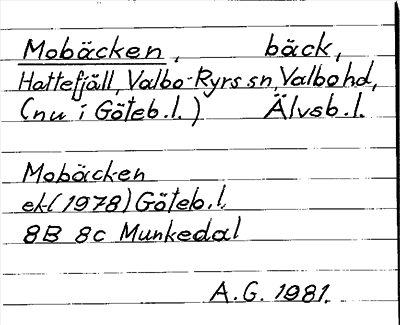 Mobäcken, bäck,
Hattefjäll, Valbo-Ryrs sn, Valbohd,
(nu i Göteb.l.) Älvsb.l.
Mobäcken
ek (1978) Göteb.l.
8B 8c Munkedal
A.G. 1981.